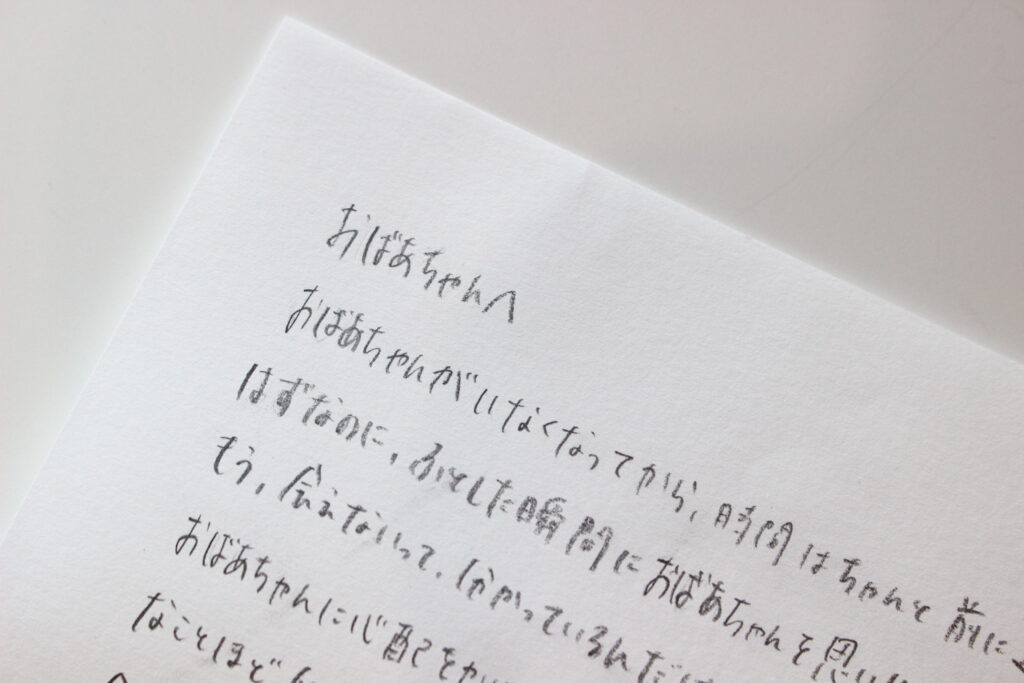 おばあちゃんへ
おばあちゃんがいなくなってから、時間はちゃんと前に
はずなのに、ふとした瞬間におばあちゃんを思い
もう、会えないって、分かっているんだけ
おばあちゃんに心配をか
なことほど